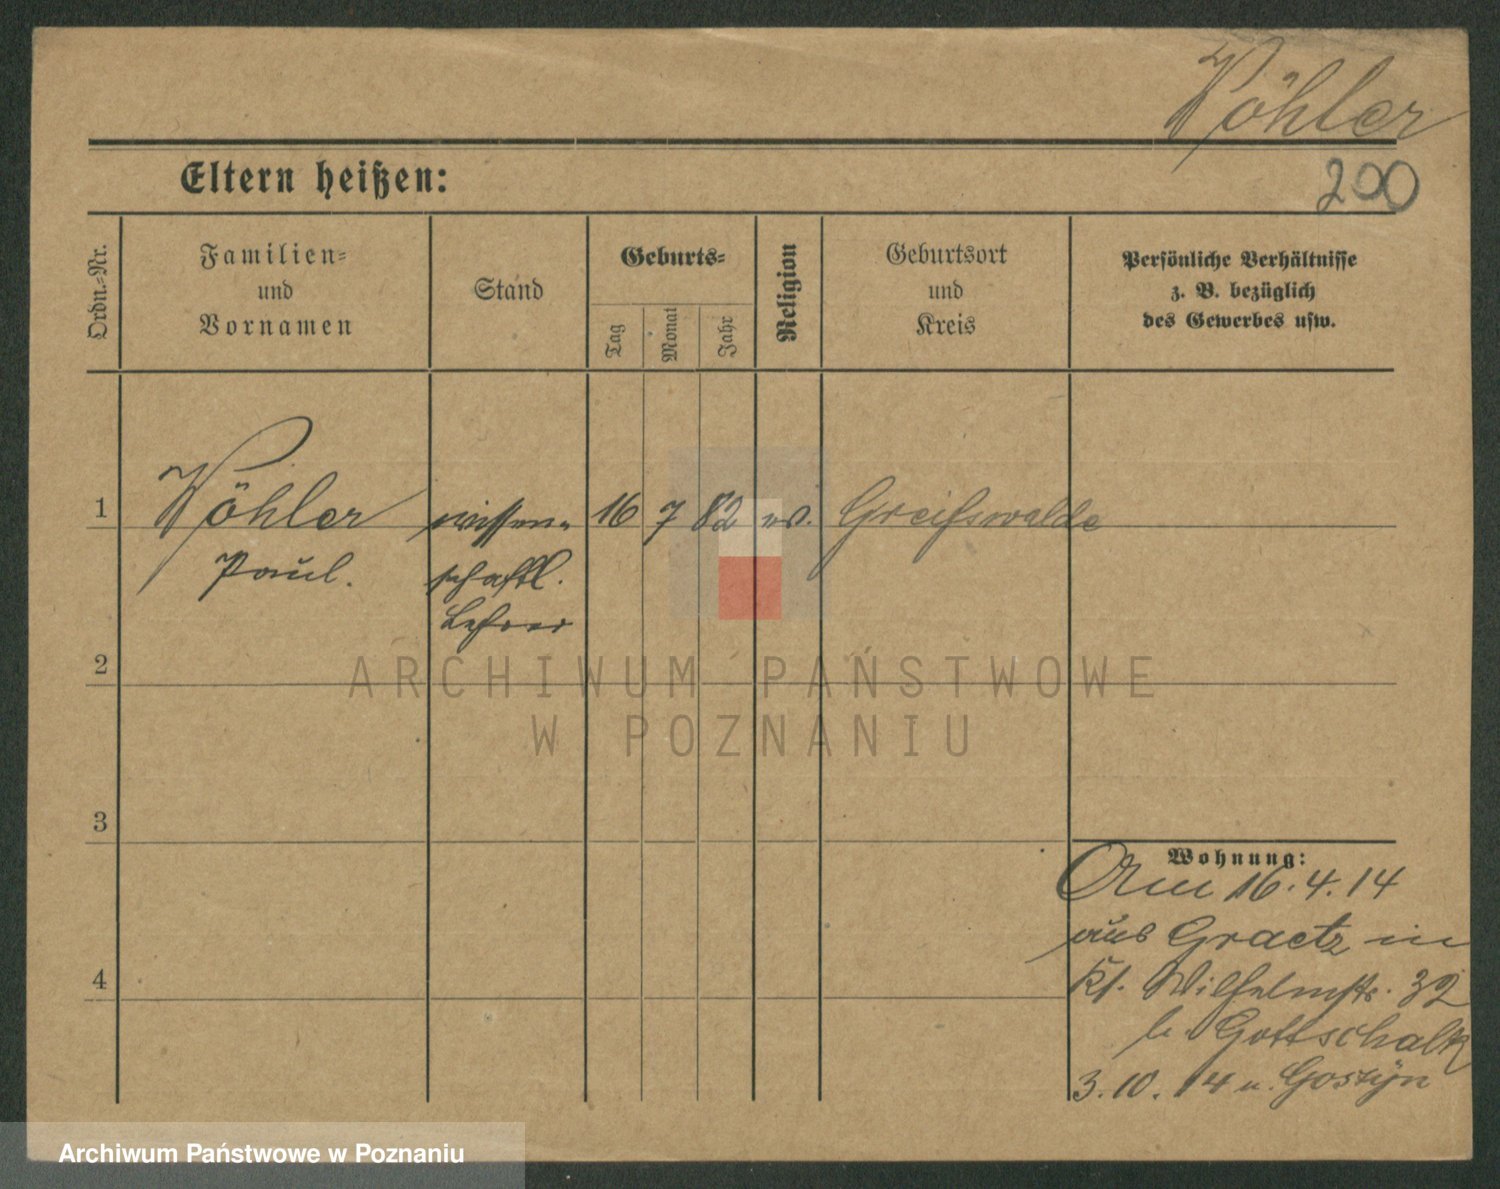 Köhler
200
Eltern heißen:
Ordn.-Nr.
Familien-
und
Vornamen
Stand
Geburts-
Tag
Monat
Jahr
Religion
Geburtsort
und
Kreis
Persönliche Verhältnisse
z. B. bezüglich
des Gewerbes usw.
1
Köhler
Paul.
wissen-
schaftl.
Lehrer
16
7
82
ev.
Greifswalde
2
ARCHIWUM PAŃSTWOWE
W POZNANIU
3
4
Wohnung:
Am 16.4.14
aus Graetz in
Wilhelmstr. 32
b. Gottschalk
3.10.14 n. Gostyn
Archiwum Państwowe w Poznaniu